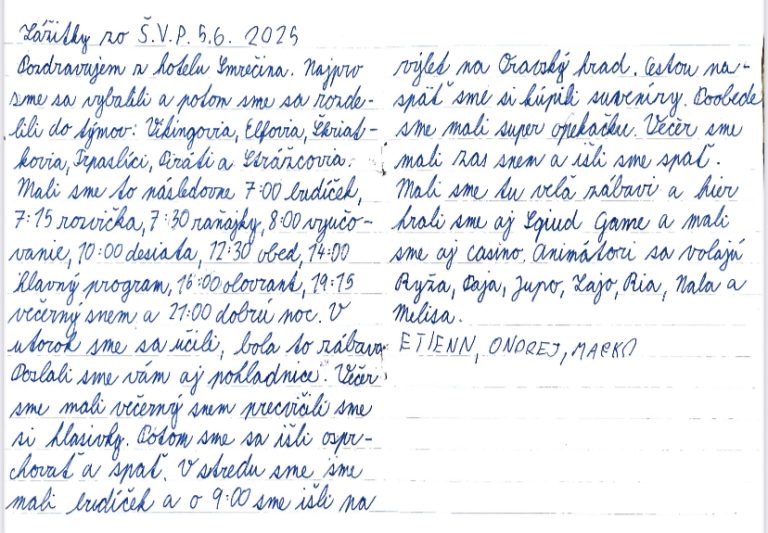 Zážitky zo Š.V.P. 5.6. 2025
Pozdravujem z hotelu Smrečina. Najprv
sme sa vybalili a potom sme sa rozde-
lili do týmov: Vikingovia, Elfovia, Škriat-
kovia, Trpaslíci, Piráti a Strážcovia.
Mali sme to následovne 7:00 budíček,
7:15 rozvička, 7:30 raňajky, 8:00 vyučo-
vanie, 10:00 desiata, 12:30 obed, 14:00
hlavný program, 16:00 olovrant, 19:15
večerný snem a 21:00 dobrú noc. V
utorok sme sa učili, bola to zábava.
Poslali sme vám aj pohladnice. Večer
sme mali večerný snem precvičili sme
si hlasivky. Potom sme sa išli ospr-
chovať a spať. V stredu sme sme
mali budíček a o 9:00 sme išli na
výlet na Oravský hrad. Cestou na-
späť sme si kúpili suveníry. Poobede
sme mali super opekačku. Večer sme
mali zas snem a išli sme spať.
Mali sme tu veľa zábavi a hier
hrali sme aj Sqiud Game a mali
sme aj casino. Animátori sa volajú
Ryža, Paja, Jupo, Lajo, Ria, Nala a
Melisa.
ETIENN, ONDREJ, MARKO